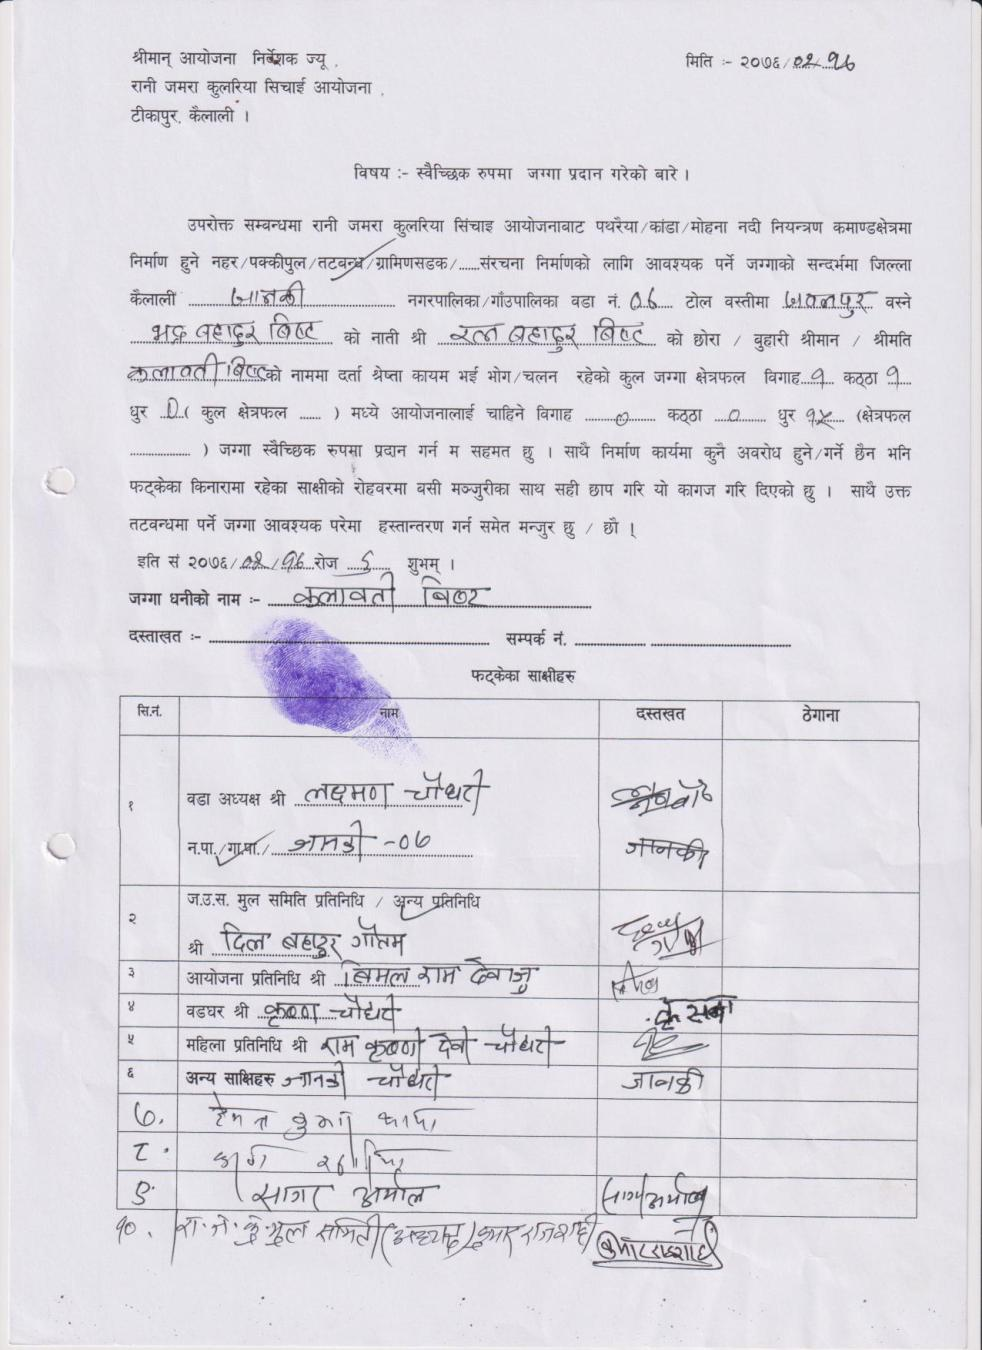 श्रीमान् आयोजना निर्देशक ज्यू ,
मिति :- २०७६/०२/१६
रानी जमरा कुलरिया सिचाई आयोजना ,
टीकापुर, कैलाली ।
विषय :- स्वैच्छिक रुपमा जग्गा प्रदान गरेको बारे ।
उपरोक्त सम्बन्धमा रानी जमरा कुलरिया सिंचाइ आयोजनाबाट पथरैया/कांडा/मोहना नदी नियन्त्रण कमाण्डक्षेत्रमा
निर्माण हुने नहर/पक्कीपुल/तटबन्ध/ग्रामिणसडक/......संरचना निर्माणको लागि आवश्यक पर्ने जग्गाको सन्दर्भमा जिल्ला
कैलाली जानकी नगरपालिका/गाँउपालिका वडा नं. ०६ टोल वस्तीमा जवनपुर वस्ने
भद्र बहादुर बिष्ट को नाती श्री रत्न बहादुर बिष्ट को छोरा / बुहारी श्रीमान / श्रीमति
कलावती बिष्ट को नाममा दर्ता श्रेष्ता कायम भई भोग/चलन रहेको कुल जग्गा क्षेत्रफल विगाह १ कठ्ठा १
धुर 0 ( कुल क्षेत्रफल ...... ) मध्ये आयोजनालाई चाहिने विगाह ० कठ्ठा ० धुर १५ (क्षेत्रफल
.................. ) जग्गा स्वैच्छिक रुपमा प्रदान गर्न म सहमत छु । साथै निर्माण कार्यमा कुनै अवरोध हुने/गर्ने छैन भनि
फट्केका किनारामा रहेका साक्षीको रोहवरमा बसी मञ्जुरीका साथ सही छाप गरि यो कागज गरि दिएको छु । साथै उक्त
तटवन्धमा पर्ने जग्गा आवश्यक परेमा हस्तान्तरण गर्न समेत मन्जुर छु / छौ ।
इति सं २०७६/०२/१६ रोज ६ शुभम् ।
जग्गा धनीको नाम :- कलावती बिष्ट
दस्ताखत :- सम्पर्क नं.
फट्केका साक्षीहरु
सि.नं. नाम दस्तखत ठेगाना
१ वडा अध्यक्ष श्री लक्ष्मण चौधरी
न.पा./गा.पा./ जानकी -०६ जानकी
२ ज.उ.स. मुल समिति प्रतिनिधि / अन्य प्रतिनिधि
श्री दिल बहादुर गौतम
३ आयोजना प्रतिनिधि श्री बिमल राम देवाजु
४ वडघर श्री कृष्ण चौधरी
५ महिला प्रतिनिधि श्री राम कृष्णी देवी चौधरी
६ अन्य साक्षिहरु जानकी चौधरी जानकी
७.
८.
९. सागर अर्माल
१०.